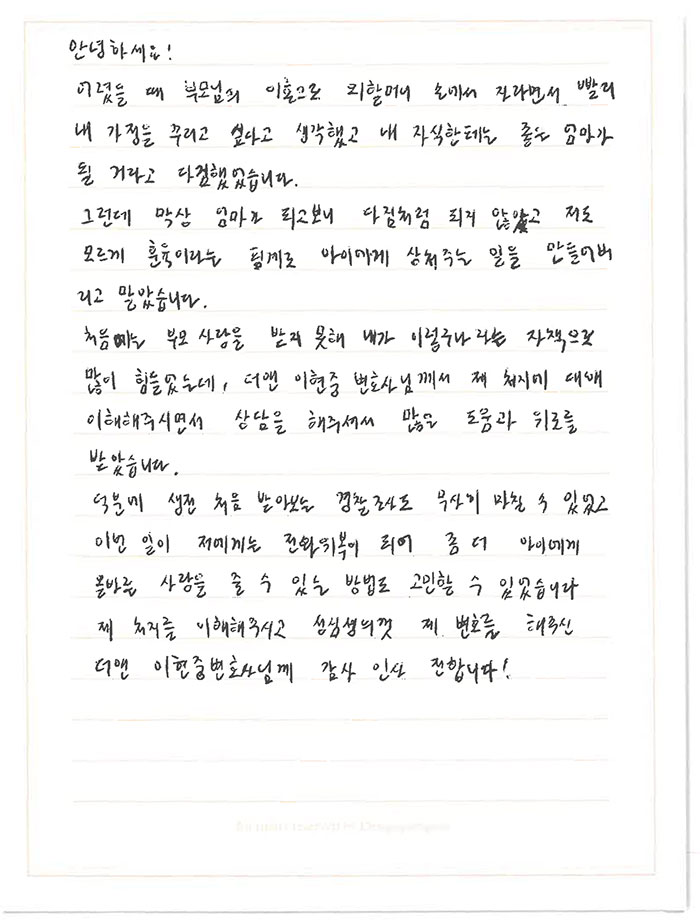 안녕하세요!
어렸을 때 부모님의 이혼으로 외할머니 손에서 자라면서 빨리
내 가정을 꾸리고 싶다고 생각했고 내 자식한테는 좋은 엄마가
될 거라고 다짐했었습니다.
그런데 막상 엄마가 되고보니 다짐처럼 되지 않았고 저도
모르게 훈육이라는 핑계로 아이에게 상처주는 일을 만들어버
리고 말았습니다.
처음에는 부모 사랑을 받지 못해 내가 이렇구나 라는 자책으로
많이 힘들었는데, 더앤 이현중 변호사님께서 제 처지에 대해
이해해주시면서 상담을 해주셔서 많은 도움과 위로를
받았습니다.
덕분에 생전 처음 받아보는 경찰조사도 무사히 마칠 수 있었고
이번 일이 저에게는 전화위복이 되어 좀 더 아이에게
올바른 사랑을 줄 수 있는 방법도 고민할 수 있었습니다
제 처지를 이해해주시고 성심성의껏 제 변호를 해주신
더앤 이현중변호사님께 감사 인사 전합니다!